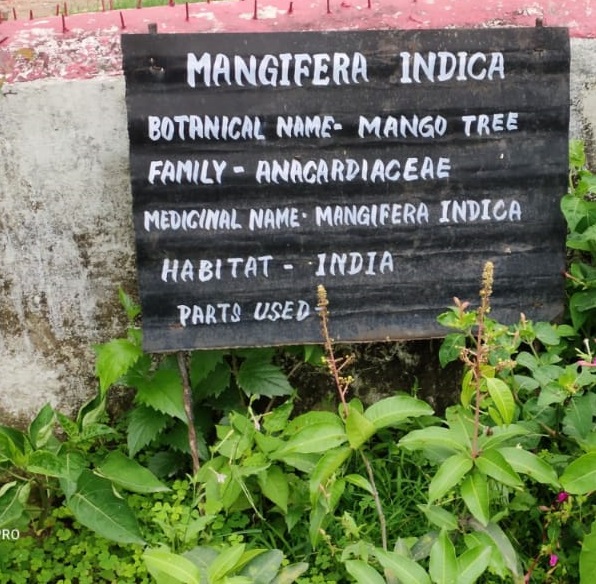 MANGIFERA INDICA
BOTANICAL NAME- MANGO TREE
FAMILY - ANACARDIACEAE
MEDICINAL NAME- MANGIFERA INDICA
HABITAT - INDIA
PARTS USED-
PRO